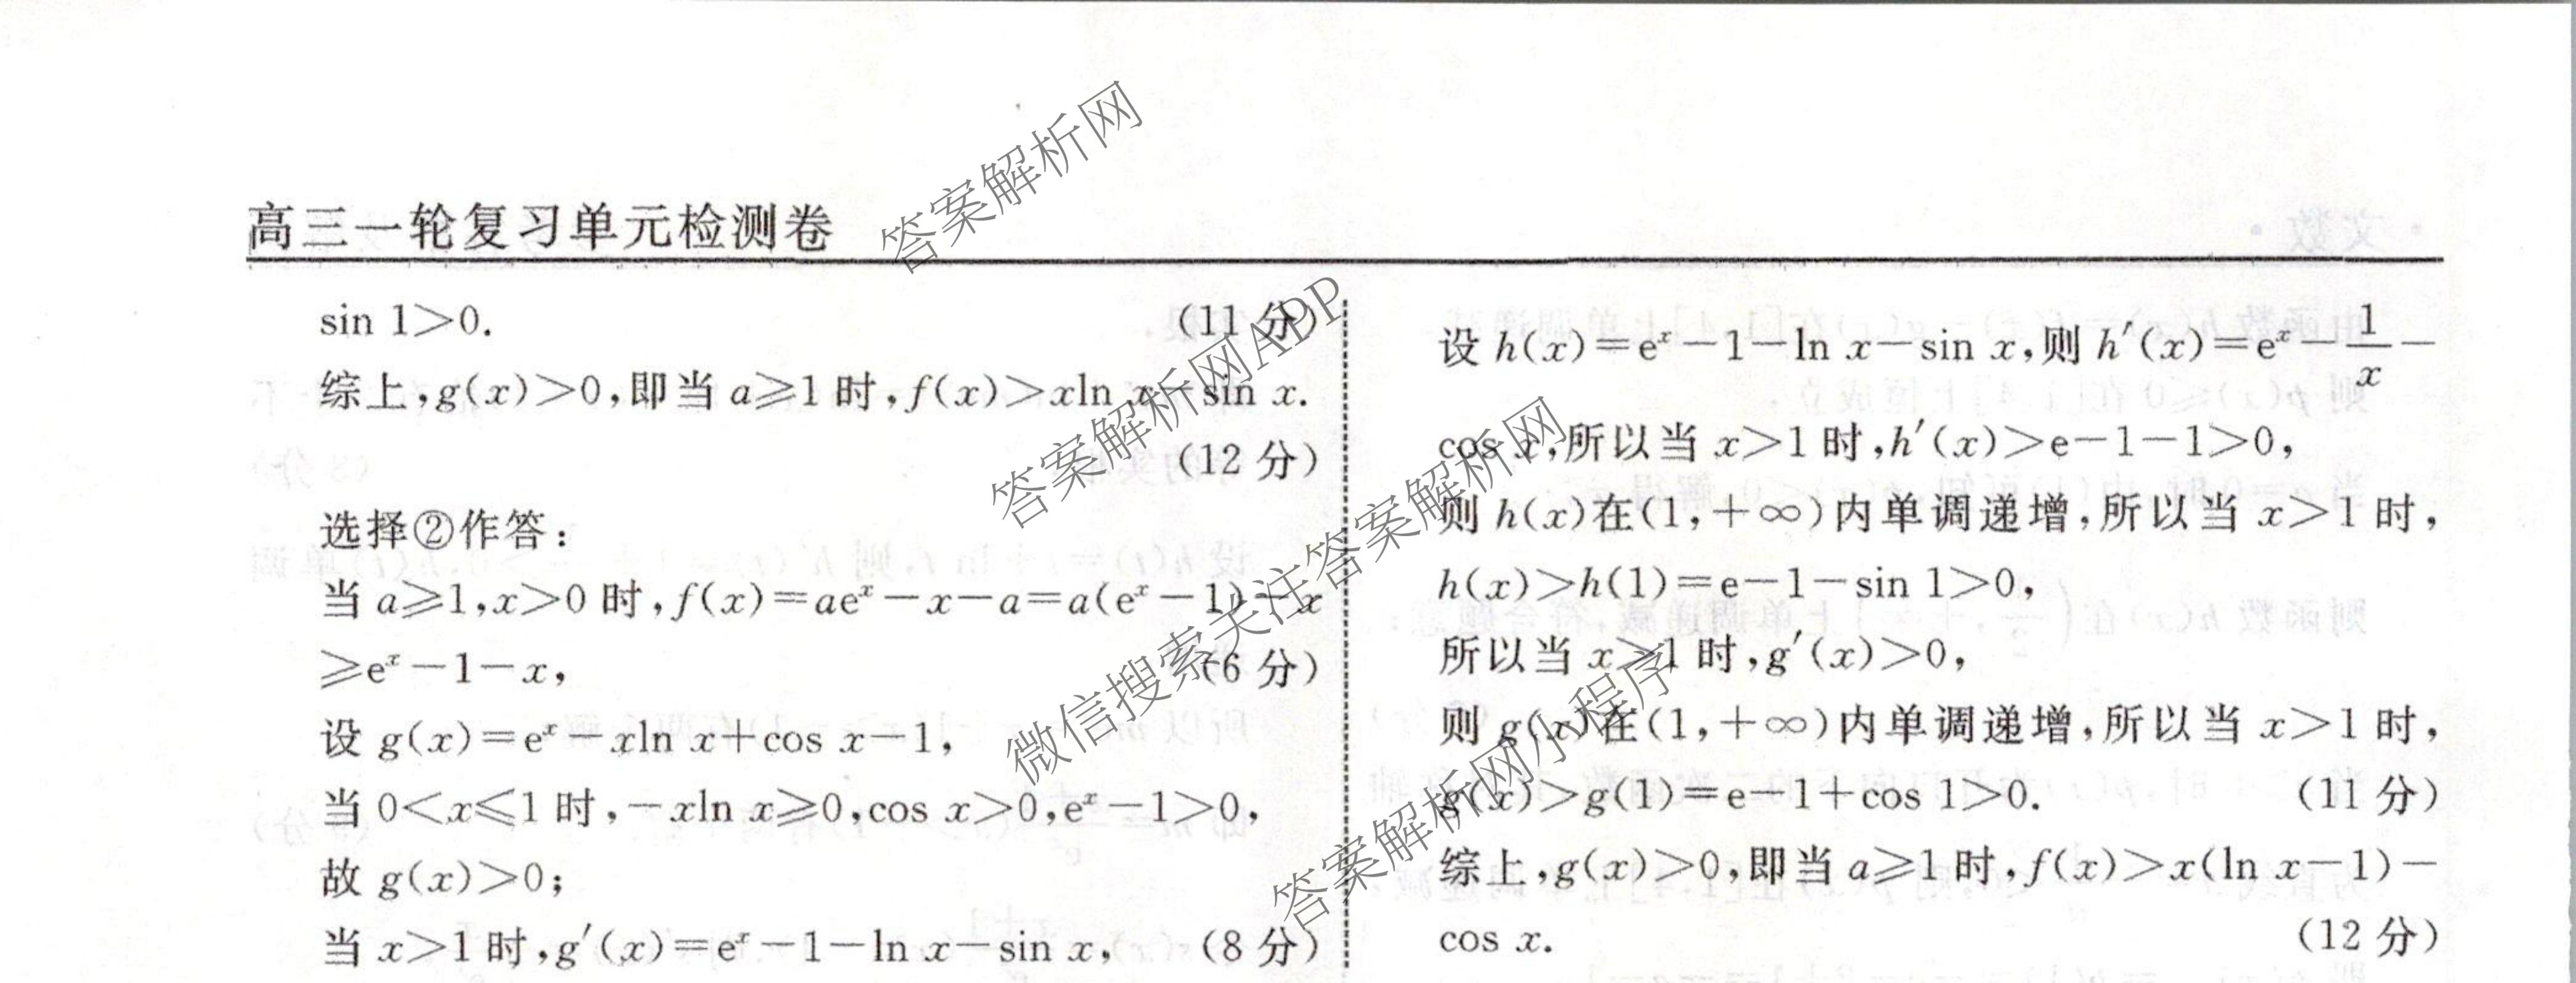 高三一轮复习单元检测卷
sin 1>0. (11 分)
综上,g(x)>0,即当 a≥1 时,f(x)>xln x-sin x.
(12 分)
选择②作答:
当 a≥1,x>0 时,f(x)=aeˣ-x-a=a(eˣ-1)-x
≥eˣ-1-x, (6 分)
设 g(x)=eˣ-xln x+cos x-1,
当 0<x≤1 时,-xln x≥0,cos x>0,eˣ-1>0,
故 g(x)>0;
当 x>1 时,g′(x)=eˣ-1-ln x-sin x, (8 分)
设 h(x)=eˣ-1-ln x-sin x,则 h′(x)=eˣ-1/x-
cos x,所以当 x>1 时,h′(x)>e-1-1>0,
则 h(x)在(1,+∞)内单调递增,所以当 x>1 时,
h(x)>h(1)=e-1-sin 1>0,
所以当 x>1 时,g′(x)>0,
则 g(x)在(1,+∞)内单调递增,所以当 x>1 时,
g(x)>g(1)=e-1+cos 1>0. (11 分)
综上,g(x)>0,即当 a≥1 时,f(x)>x(ln x-1)-
cos x. (12 分)
答案解析网
答案解析网APP
微信搜索关注答案解析网
答案解析网小程序